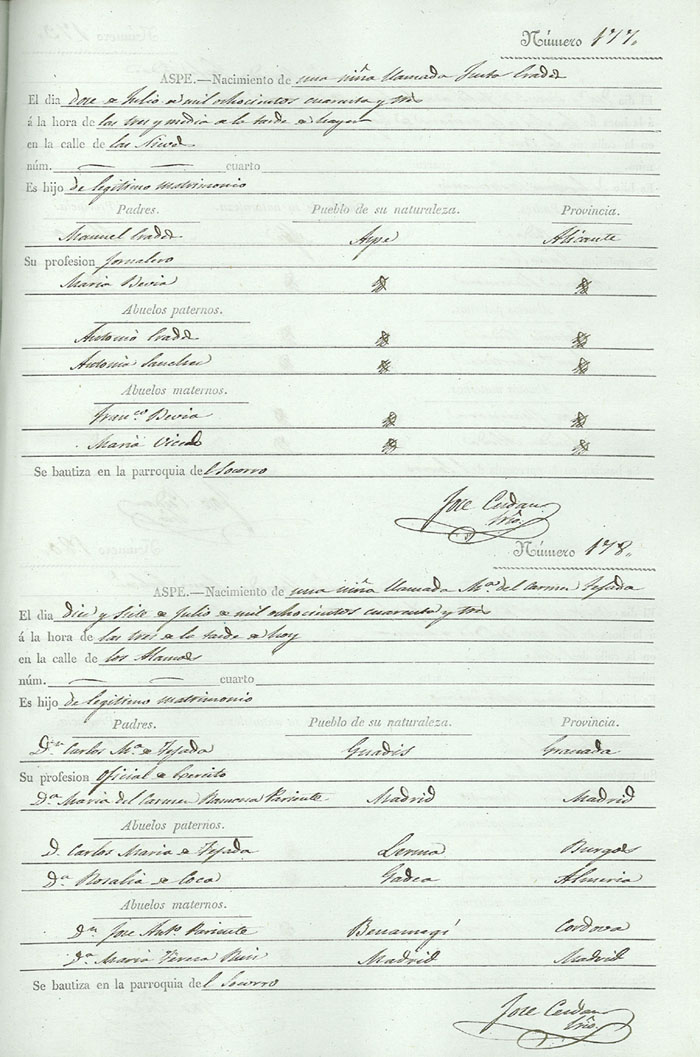 Número 177.
ASPE.—Nacimiento de una niña llamada
El dia dose de Julio de mil ochocientos cuarenta y tres
á la hora de las tres y media de la tarde de hayer
en la calle de las Nieves
núm. — — cuarto
Es hijo de legitimo matrimonio
Padres. Pueblo de su naturaleza. Provincia.
Manuel Aspe Alicante
Su profesion Jornalero
Maria Bevia
Abuelos paternos.
Antonio
Antonia Sanchez
Abuelos maternos.
Fran.co Bevia
Maria
Se bautiza en la parroquia del Socorro
Jose Cerdan
Número 178.
ASPE.—Nacimiento de una niña llamada M.a del Carmen Tejada
El dia diez y siete de Julio de mil ochocientos cuarenta y tres
á la hora de las tres de la tarde de hoy
en la calle de los Alamos
núm. — — cuarto
Es hijo de legitimo matrimonio
Padres. Pueblo de su naturaleza. Provincia.
D.n Carlos M.a de Tejada Guadis Granada
Su profesion Oficial de Exercito
D.a Maria del Carmen Pariente Madrid Madrid
Abuelos paternos.
D. Carlos Maria de Tejada Lerma Burgos
D.a Rosalia de Coca Almeria
Abuelos maternos.
D.n Jose Ant.o Pariente Benamegí Cordova
D.a Maria Teresa Madrid Madrid
Se bautiza en la parroquia del Socorro
Jose Cerdan